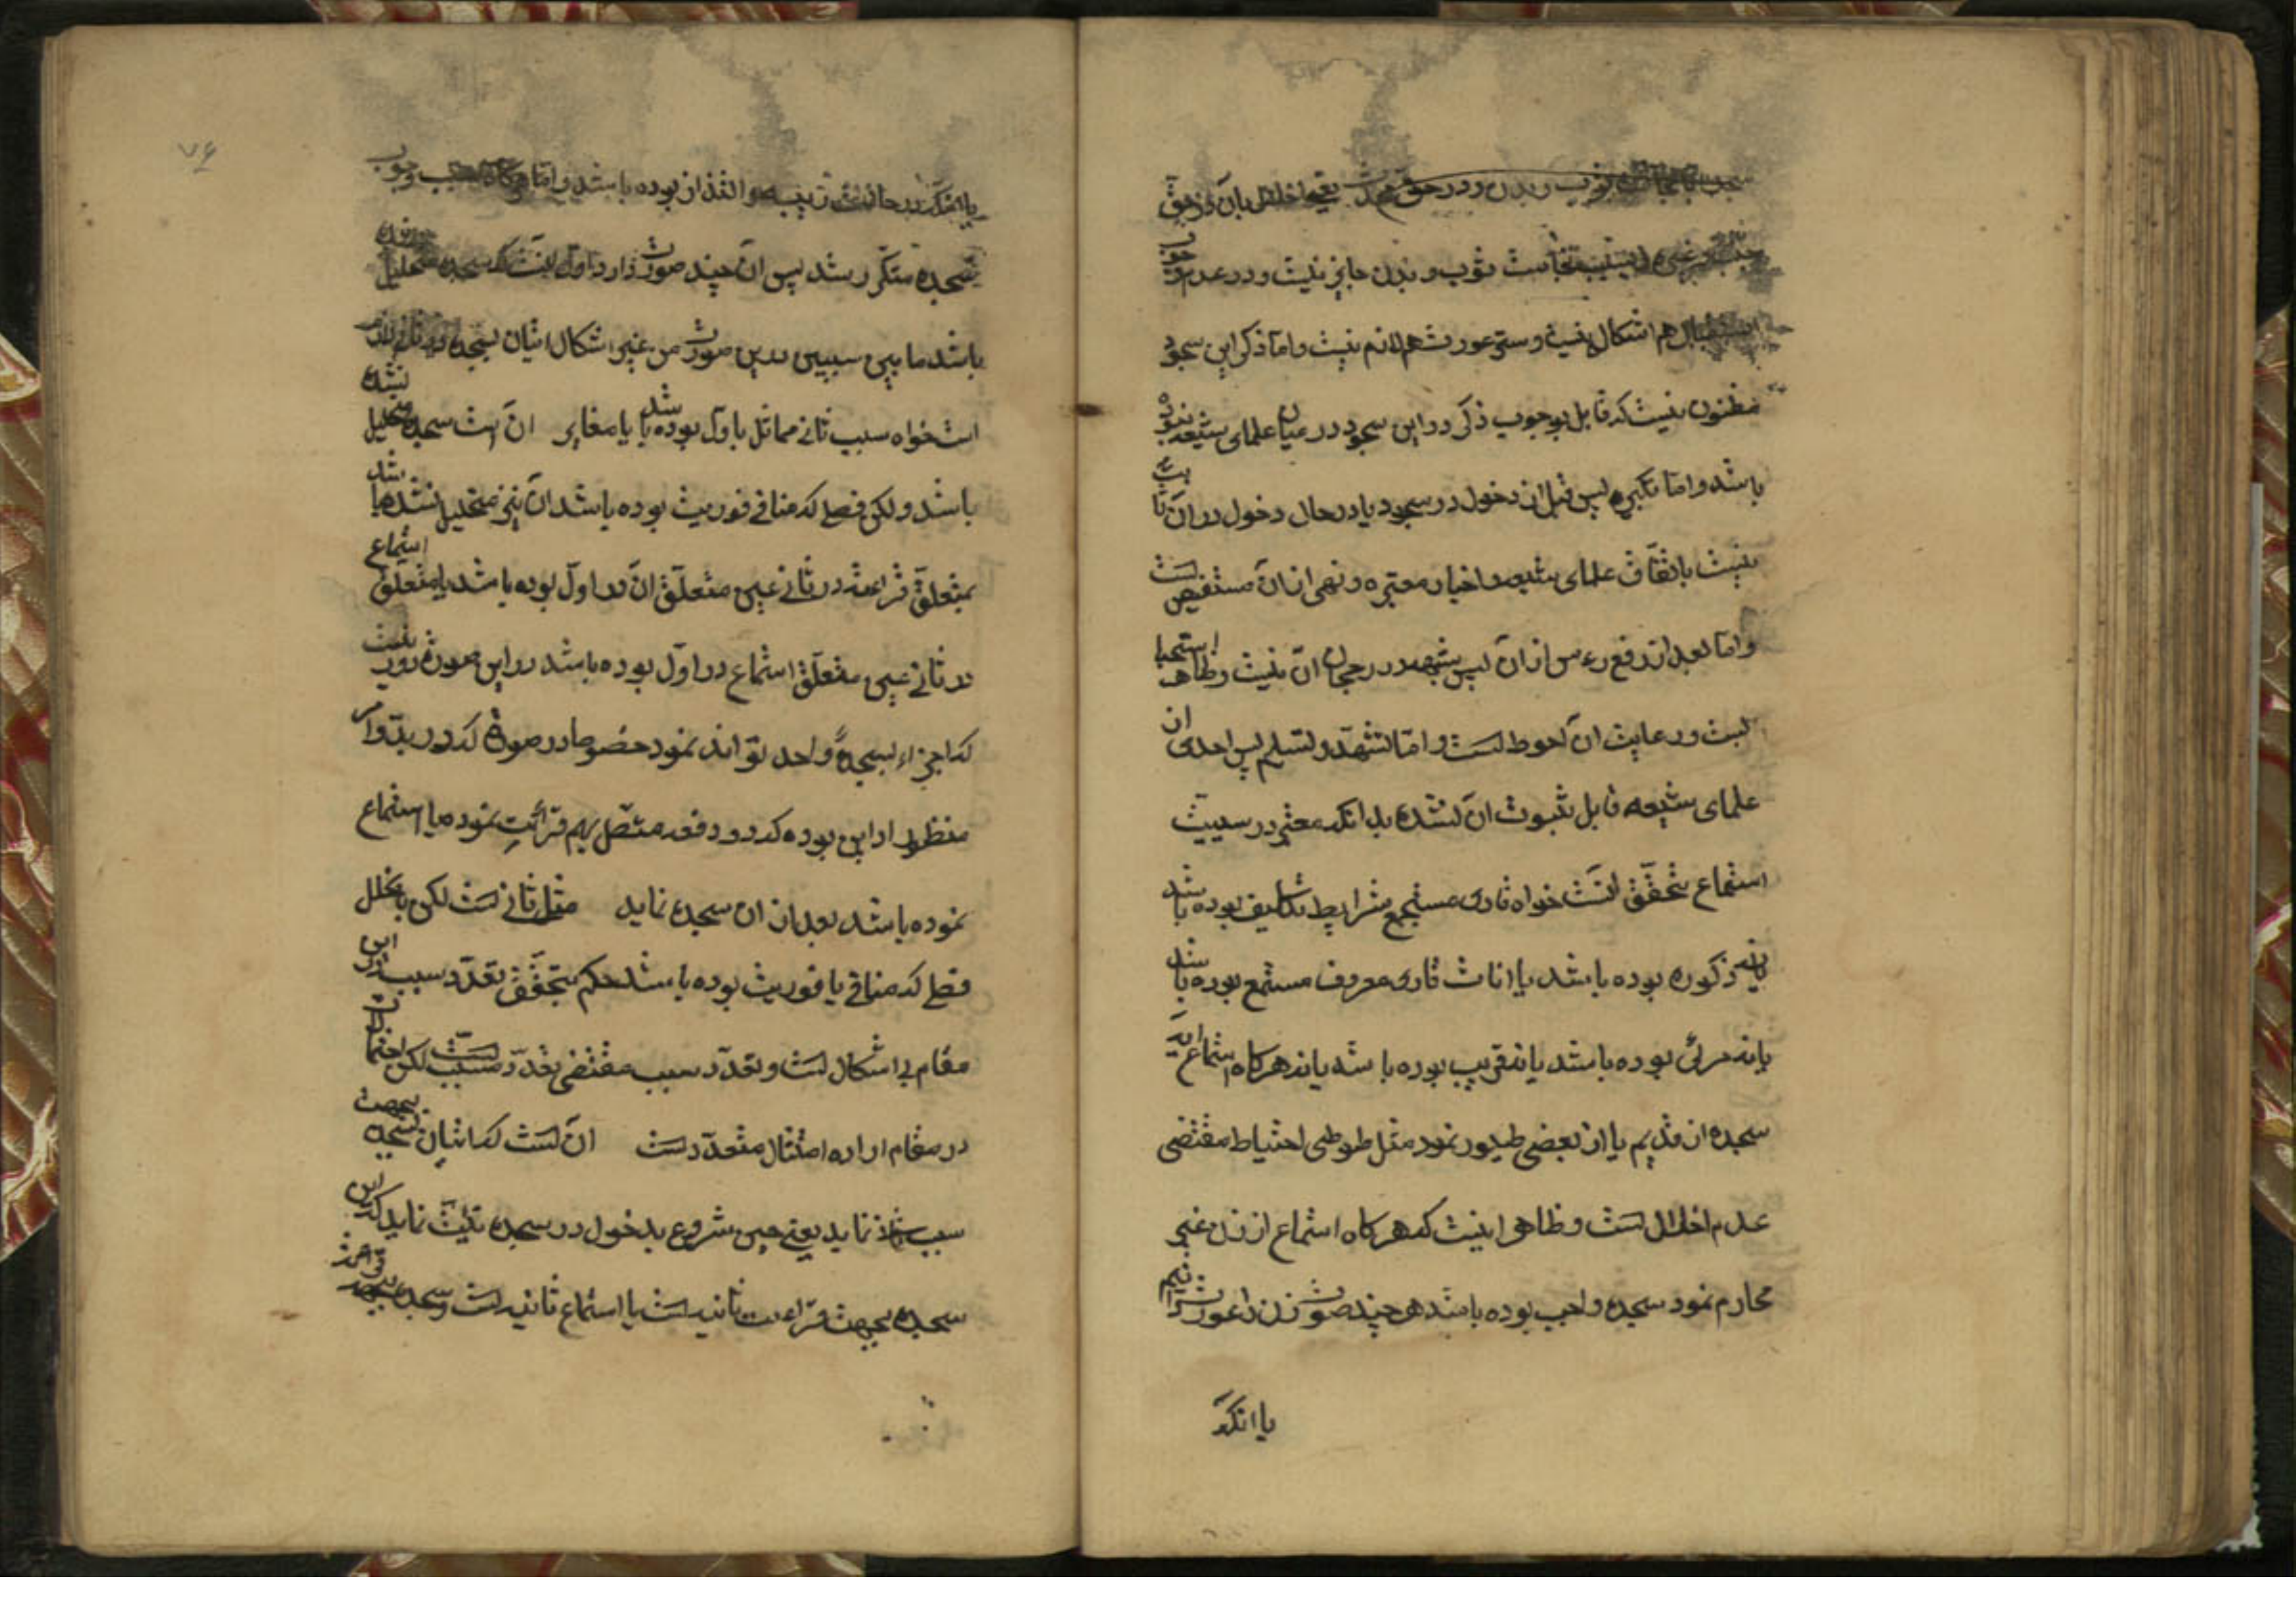 ثوب و بدن و در حق محدث یعنی اخلال بآن در حق
بسبب نجاست ثوب و بدن جایز نیست و در عدم وجوب
استقبال هم اشکال نیست و ستر عورت هم لازم نیست و اما ذکر این سجود
مظنون نیست که قایل بوجوب ذکر در این سجود در میان علمای شیعه بوده
باشد و اما تکبیره پس قبل از دخول در سجود یا در حال دخول در آن ثابت
نیست باتفاق علمای شیعه و اخبار معتبره و نهی از آن مستفیض است
و اما بعد از رفع رءس از آن پس شبهه در رجحان آن نیست و ظاهر استحبا
بست و رعایت آن احوط است و اما تشهد و تسلیم پس احدی از
علمای شیعه قایل بثبوت آن نشده بدانکه معتبر در سببیت
استماع تحقق آنست خواه قاری مستجمع شرایط تکالیف بوده باشد
یا نه ذکوره بوده باشد یا اناث قاری معروف مستمع بوده باشد
یا نه مرئی بوده باشد یا نه قریب بوده باشد یا نه هرگاه استماع آیه
سجده از قدیم یا از بعضی طیور نمود مثل طوطی احتیاط مقتضی
عدم اخلال است و ظاهر اینست که هرگاه استماع از زن غیر
محارم نمود سجده واجب بوده باشد هر چند صوت زن را عورت دانیم
یا آنکه
۷۶
یا آنکه در حالت ریبه و التذاذ بوده باشد و اما هرگاه سبب وجوب
سجده متکرر شد پس آن چند صورت دارد اول آنست که سجده متخلیل شده
باشد ما بین سببین درین صورت من غیر اشکال اتیان بسجده در ثانی لازم
است خواه سبب ثانی مماثل با اول بوده باشد یا مغایر آن است سجده متخلیل نشده
باشد ولکن فصلی که منافی فوریت بوده باشد آن نیز متخلیل نشده باشد
متعلق قراءت در ثانی غیر متعلق آن در اول بوده باشد یا متعلق استماع
در ثانی غیر متعلق استماع در اول بوده باشد در این صورت دور نیست
که اجزاء بسجدهٔ واحد تواند نمود خصوصا در صورتی که در بدو امر
منظور او این بوده که دو دفعه متصل بهم قرائت نموده یا استماع
نموده باشد بعد از آن سجده نماید مثل ثانی است لکن با تخلل
فصلی که منافی با فوریت بوده باشد حکم بتحقق تعدد سبب در این
مقام بی اشکال است و تعدد سبب مقتضی تعدد مسبب است لکن
در مقام اراده امتثال متعدد است آن است که اتیان بسجده بجهت
سبب نماید یعنی حین شروع بدخول در سجده نیت نماید که این
سجده بجهت قراءت ثانیه است یا استماع ثانیه است و سجده بجهت قراءت